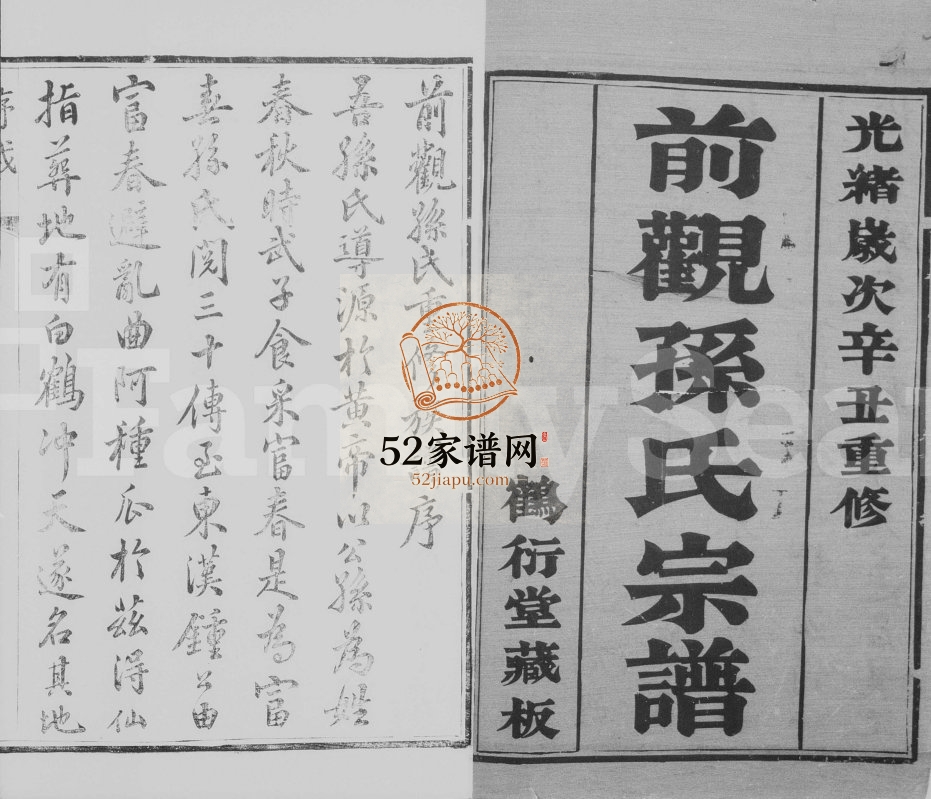 光緒歲次辛丑重修
前觀孫氏宗譜
鶴衍堂藏板
前觀孫氏重修族 序
吾孫氏導源於黄帝以公孫為姓
春秋時武子食采富春是為富
春孫氏閱三十傳至東漢鍾公由
富春避亂曲阿種瓜於茲得仙
指葬地有白鶴冲天遂名其地
52家谱网
52jiapu.com